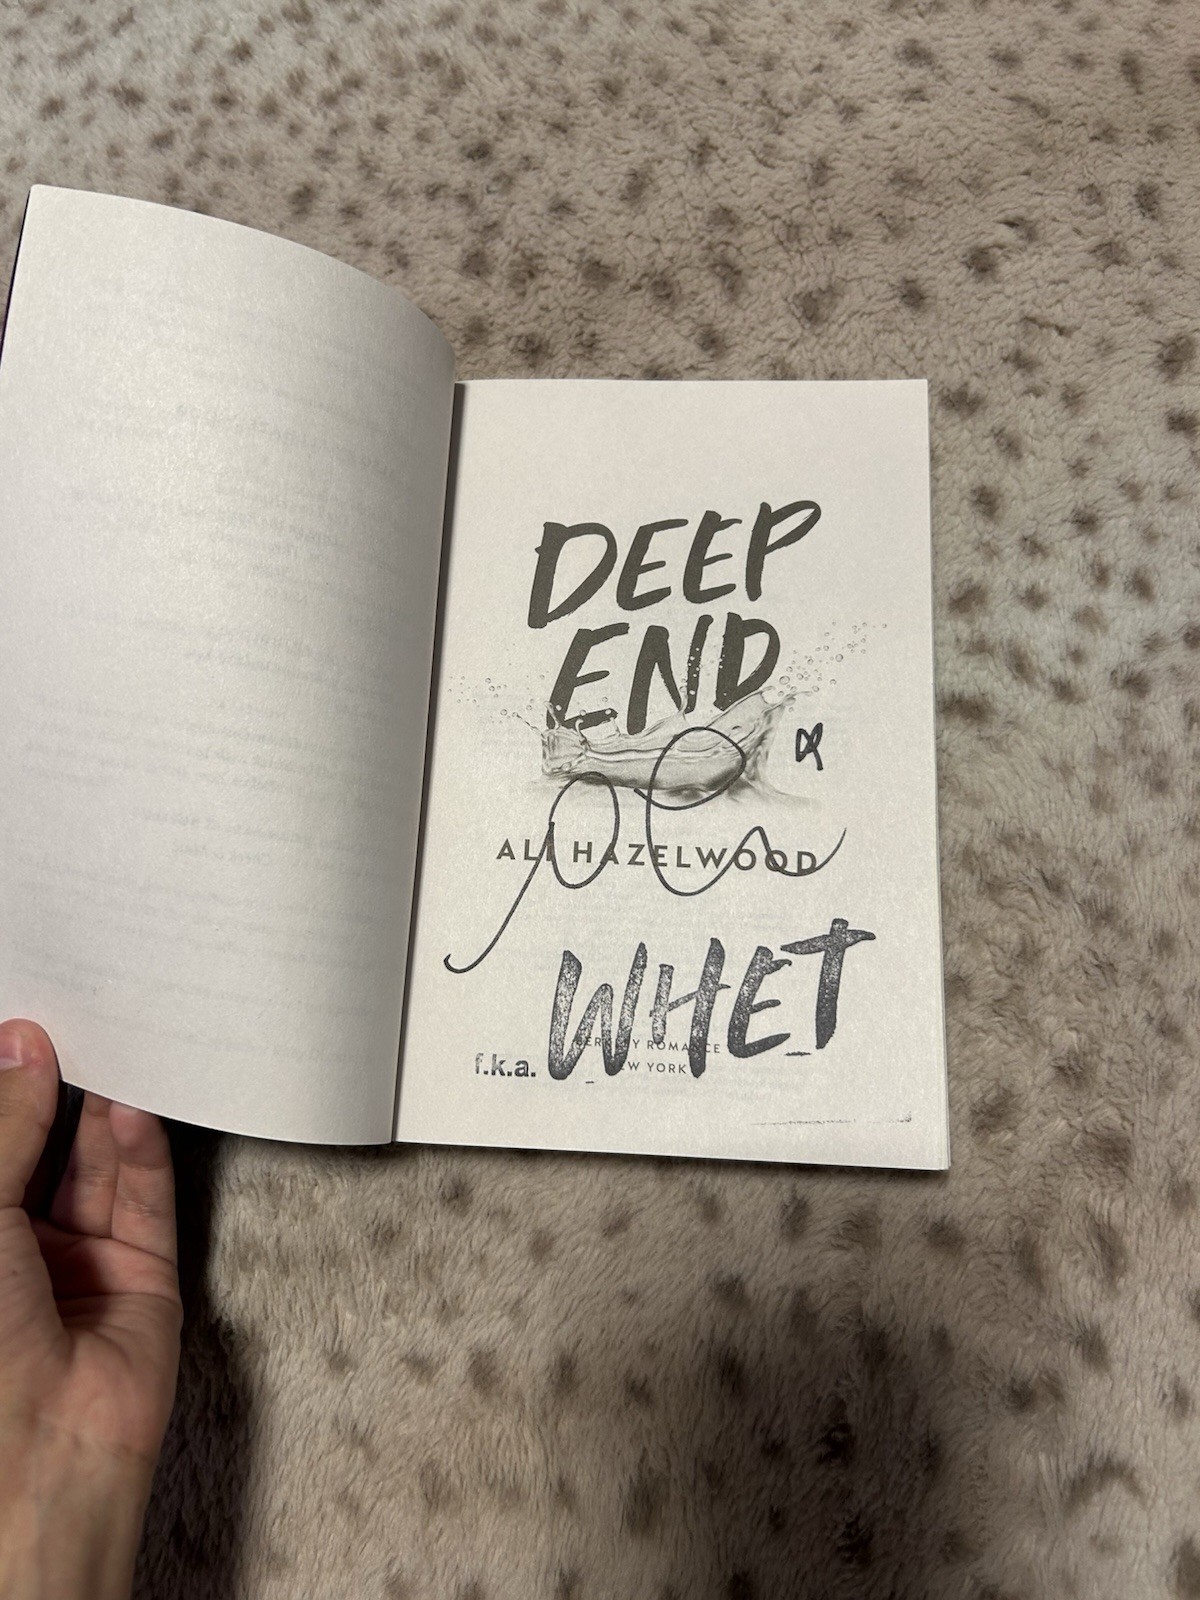 DEEP
END
ALI HAZELWOOD
WHET
BERKLEY ROMANCE
f.k.a.
NEW YORK